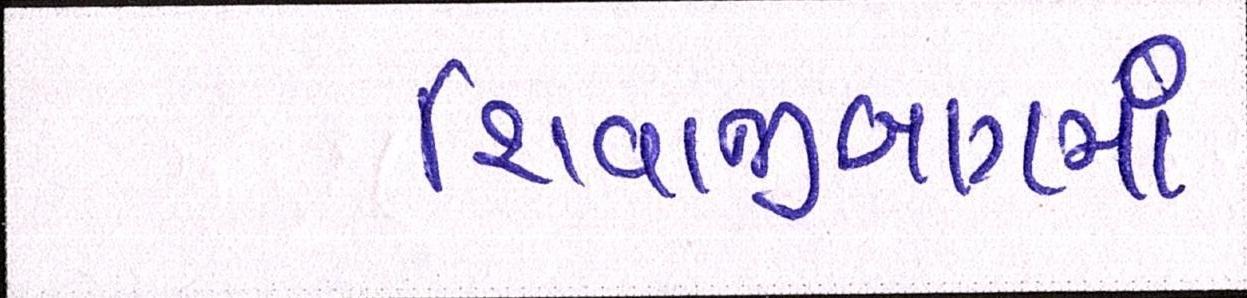 શિવાજીબાગમાં